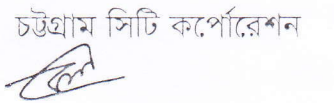 চট্টগ্রাম সিটি কর্পোরেশন